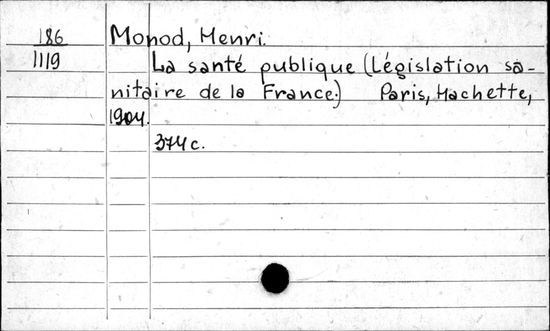 186
1119
Monod, Henri.
La santé publique (Législation sa-
nitaire de la France.) Paris, Hachette,
1904.
374 c.